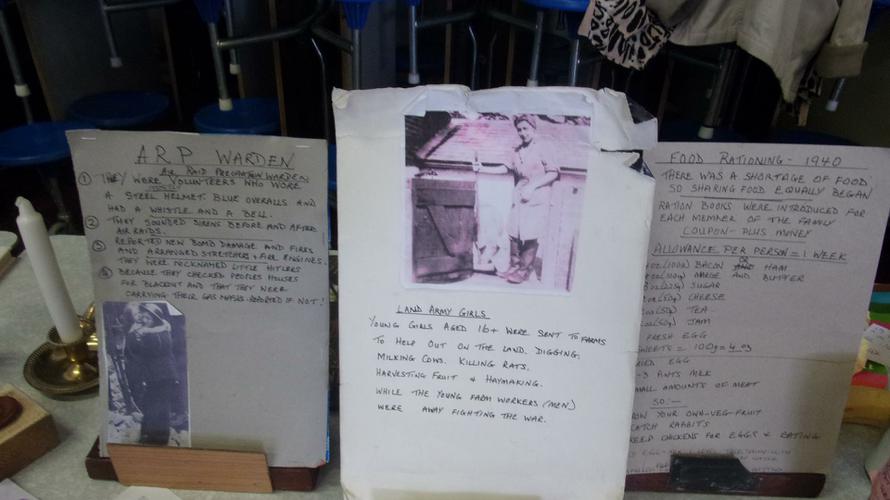 A.R.P WARDEN
AIR RAID PRECAUTION WARDEN
① THEY WERE VOLUNTEERS WHO WORE
A STEEL HELMET. BLUE OVERALLS AND
HAD A WHISTLE AND A BELL.
② THEY SOUNDED SIRENS BEFORE AND AFTER
AIR RAIDS.
③ REPORTED NEW BOMB DAMAGE AND FIRES
AND ARRANGED STRETCHERS & FIRE ENGINES.
THEY WERE NICKNAMED LITTLE HITLERS
④ BECAUSE THEY CHECKED PEOPLES HOUSES
FOR BLACKOUT AND THAT THEY WERE
CARRYING THEIR GAS MASKS REPORTED IF NOT!
LAND ARMY GIRLS
YOUNG GIRLS AGED 16+ WERE SENT TO FARMS
TO HELP OUT ON THE LAND. DIGGING,
MILKING COWS. KILLING RATS.
HARVESTING FRUIT & HAYMAKING.
WHILE THE YOUNG FARM WORKERS (MEN)
WERE AWAY FIGHTING THE WAR.
FOOD RATIONING - 1940
THERE WAS A SHORTAGE OF FOOD
SO SHARING FOOD EQUALLY BEGAN
RATION BOOKS WERE INTRODUCED FOR
EACH MEMBER OF THE FAMILY
COUPON - PLUS MONEY
ALLOWANCE PER PERSON = 1 WEEK
BACON OR HAM
MARGE AND BUTTER
SUGAR
CHEESE
TEA
JAM
FRESH EGG
SWEETS = 100g = 4 oz
DRIED EGG
PINTS MILK
SMALL AMOUNTS OF MEAT
SO:-
GROW YOUR OWN - VEG - FRUIT
CATCH RABBITS
BREED CHICKENS FOR EGGS & EATING